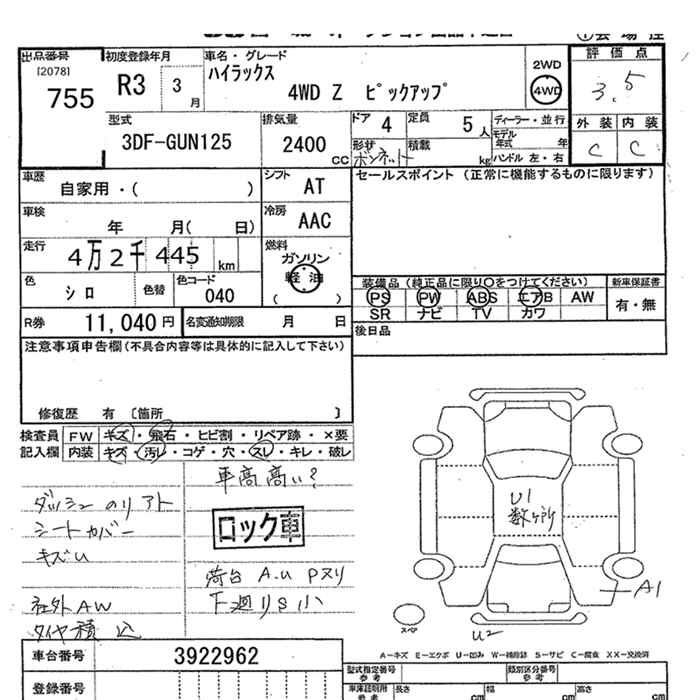 出品番号 初度登録年月 車名・グレード 評価点
[2078] R3 3月 ハイラックス 2WD
755 4WD Z ピックアップ 4WD 3.5
型式 排気量 ドア 4 定員 5人 ディーラー・並行 外装 内装
3DF-GUN125 2400cc モデル年式 年 C C
形状 ボンネット 積載 kg ハンドル 左・右
車歴 シフト セールスポイント (正常に機能するものに限ります)
自家用・( ) AT
車検 冷房
年 月( 日) AAC
走行 燃料
4万2千445km ガソリン
色 色替 色コード 軽油
シロ 040 ( )
装備品 (純正品に限り○をつけてください) 新車保証書
PS PW ABS エアB AW 有・無
SR ナビ TV カワ
R券 11,040円 名変通知期限 月 日 後日品
注意事項申告欄(不具合内容等は具体的に記入して下さい)
修復歴 有 〔箇所 〕
検査員 FW キズ・飛石・ヒビ割・リペア跡・×要
記入欄 内装 キズ・汚レ・コゲ・穴・スレ・キレ・破レ
車高高い?
ダッシュ のり アト
シートカバー
キズU
ロック車
荷台 A.U Pヌリ
社外AW 下廻りS小
タイヤ積込
U1
数ヶ所
A1
スペア
U2
A-キズ E-エクボ U-凹み W-補修跡 S-サビ C-腐食 XX-交換済
車台番号 3922962
型式指定番号 参考 類別区分番号 参考
登録番号 車庫証明用 参考 長さ cm 幅 cm 高さ cm